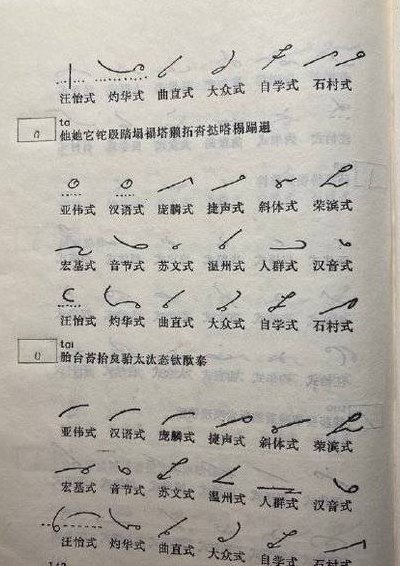 汪怡式 灼华式 曲直式 大众式 自学式 石村式
ta
他她它铊趿踏塌褟塔獭拓沓挞嗒榻蹋遢
亚伟式 汉语式 庞麟式 捷声式 斜体式 荣滨式
宏基式 音节式 苏文式 温州式 人群式 汉音式
汪怡式 灼华式 曲直式 大众式 自学式 石村式
tai
胎台苔抬炱骀太汰态钛酞泰
亚伟式 汉语式 庞麟式 捷声式 斜体式 荣滨式
宏基式 音节式 苏文式 温州式 人群式 汉音式
汪怡式 灼华式 曲直式 大众式 自学式 石村式